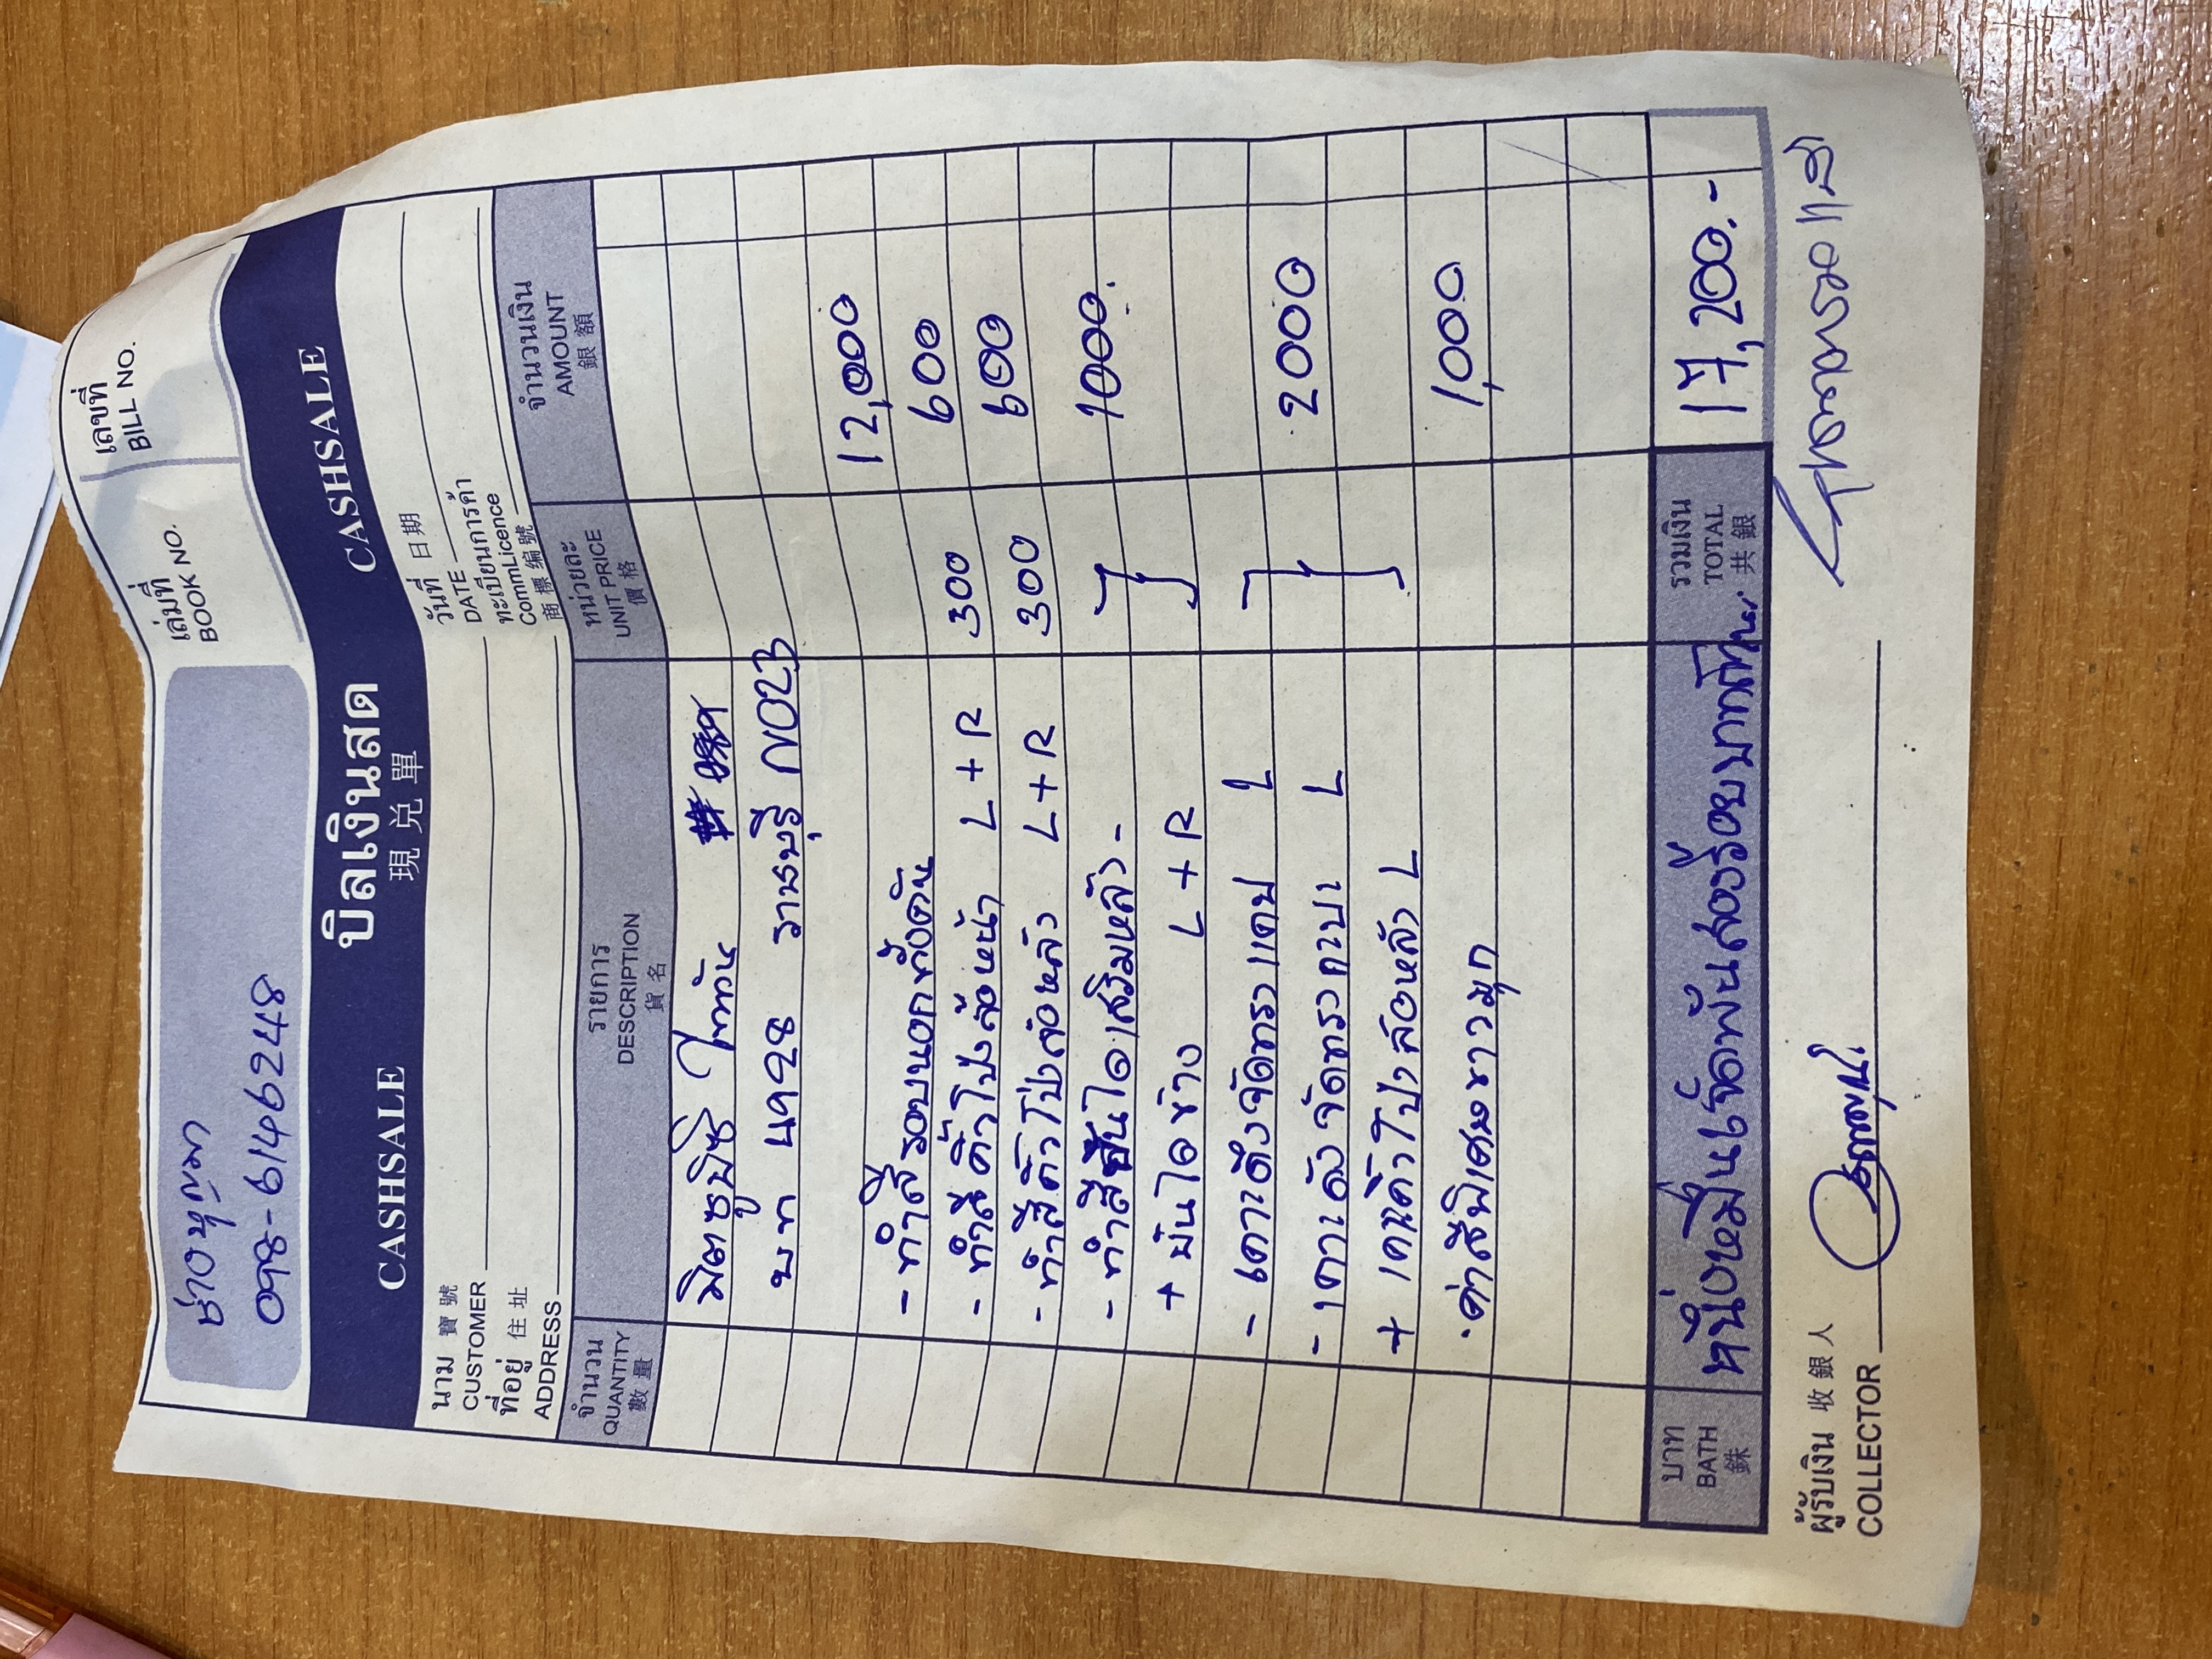 ช่างหนุ่มา
098-61496248
เล่มที่
BOOK NO.
เลขที่
BILL NO.
CASHSALE บิลเงินสด CASHSALE
現 兑 單
นาม 寶 號
CUSTOMER
วันที่ 日 期
DATE
ที่อยู่ 住 址
ADDRESS
ทะเบียนการค้า
CommLicence
商 標 编 號
จำนวน
QUANTITY
數 量
รายการ
DESCRIPTION
貨 名
หน่วยละ
UNIT PRICE
價 格
จำนวนเงิน
AMOUNT
銀 額
มิตซูบิชิ ไททัน
บท 4928 ราชบุรี NO23
- ทำสีรอบนอกทั้งคัน 12,000
- ทำสีคิ้วโป่งล้อหน้า L + R 300 600
- ทำสีคิ้วโป่งล้อหลัง L + R 300 600
- ทำสีบันไดเสริมหลัง - 1000.
+ บันไดข้าง L + R
- เคาะดึงจัดทรงแคป L
- เคาะดัง จัดทรงกะบะ L 2000
+ เคาะคิ้วโป่งล้อหลัง L
. ค่าสีพิเศษขาวมุก 1,000
บาท
BATH
銖
หนึ่งหมื่นเจ็ดพันสองร้อยบาทถ้วน
รวมเงิน
TOTAL
共 銀
17,200.-
ผู้รับเงิน 收 銀 人
COLLECTOR